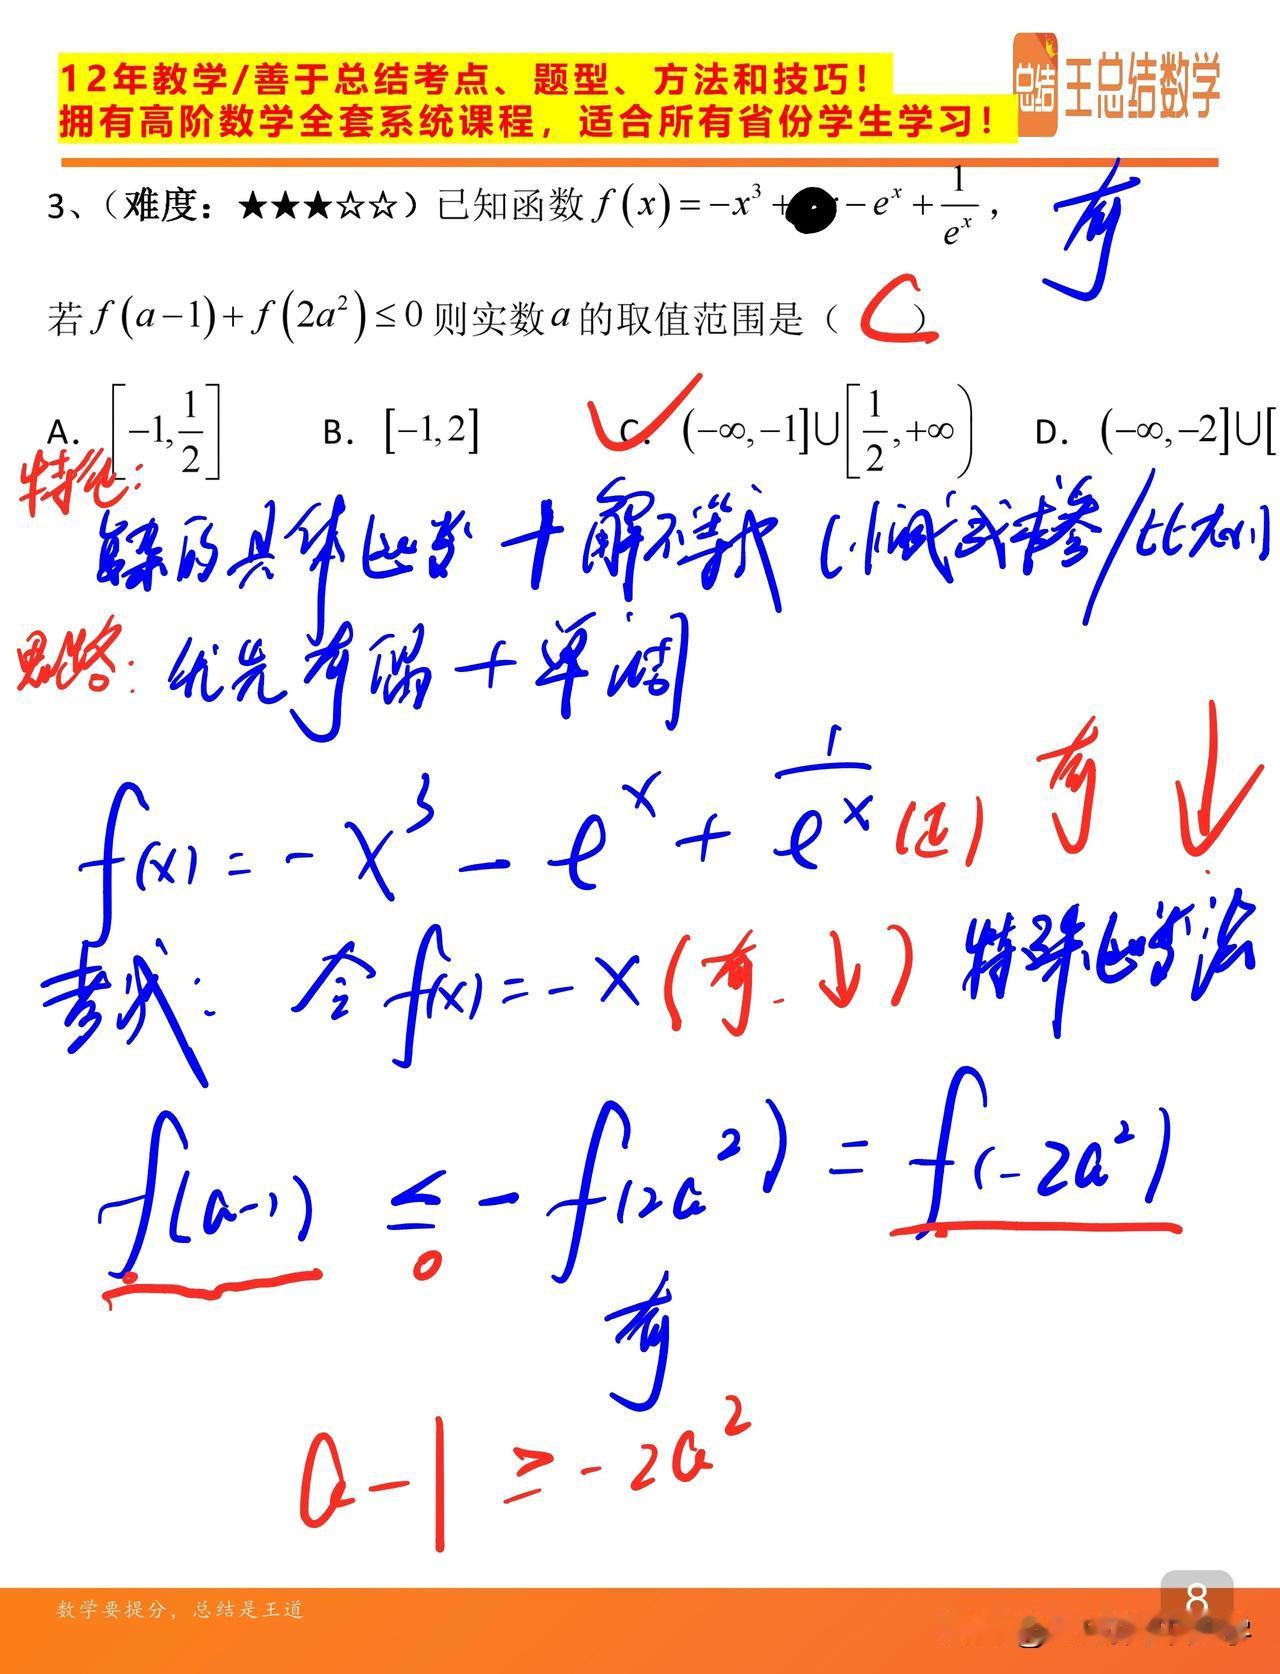 12年教学/善于总结考点、题型、方法和技巧！
拥有高阶数学全套系统课程，适合所有省份学生学习！
总结 王总结数学
3、（难度：★★★☆☆）已知函数 f(x)=-x³+ -eˣ+1/eˣ，
奇
若 f(a-1)+f(2a²)≤0 则实数 a 的取值范围是（ C ）
A. [-1, 1/2] B. [-1,2] C. (-∞,-1]∪[1/2,+∞) D. (-∞,-2]∪[
特征：
复杂的具体函数+解不等式（小题或求参/比大小
思路：优先奇偶+单调
f(x)=-x³-eˣ+1/eˣ (正) 奇 ↓
考试：令f(x)=-x(奇.↓) 特殊函数法
f(a-1)≤-f(2a²)=f(-2a²)
奇
a-1≥-2a²
数学要提分，总结是王道
8